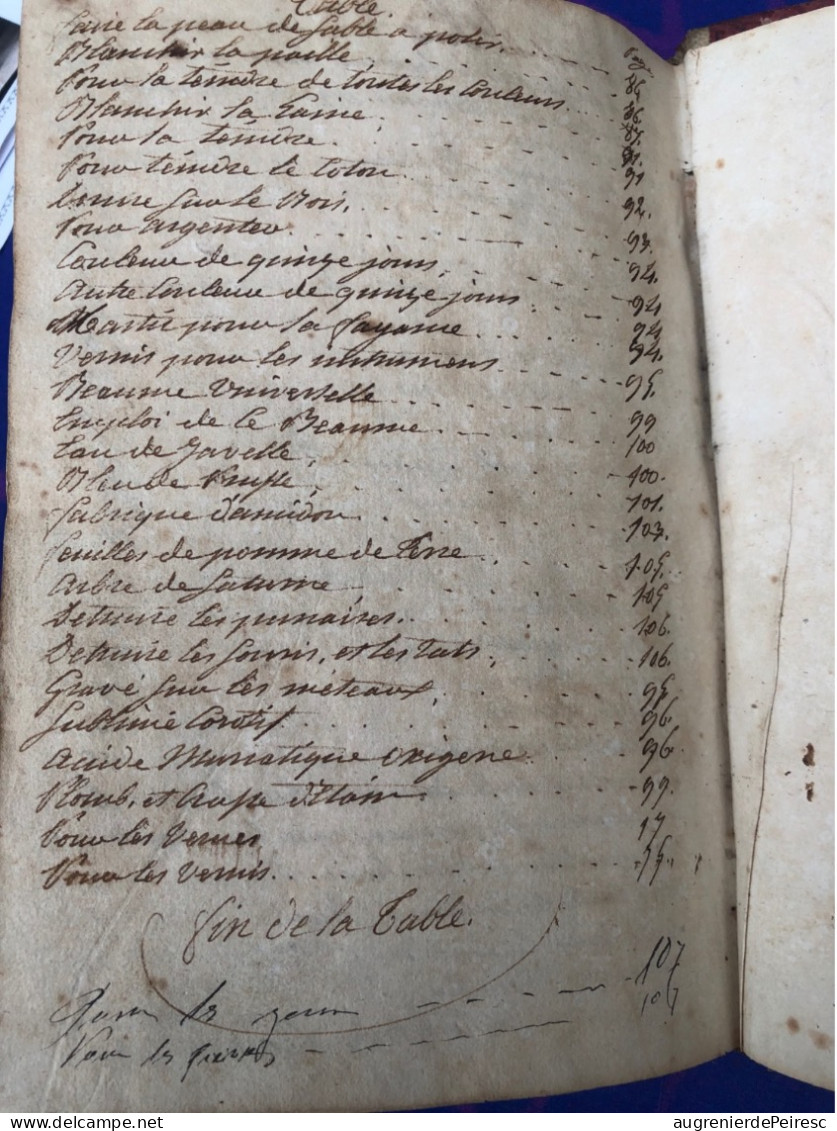 Table.
faire la peau de sable a polir. page
Blanchir la paille, 86.
Pour la temure de toutes les Couleurs 86.
Blanchir la Laine 87.
Pour la temure. 91.
Pour temdre le Coton 91
Dorure sur le Bois. 92.
Pour argenter. 93.
Couleur de quinze jours, 94.
Autre Couleur de quinze jours 94
Mastic pour la fayance 94
Vernis pour les instrumens 94.
Beaume Universelle 95.
Emploi de le Beaume 99
Eau de Javelle, 100
Bleu de Prusse, 100.
fabrique D'amidon 101.
feuilles de pomme de Terre 103.
Arbre de Saturne, 105.
Detruire les punaises. 105
Detruire les souris, et les rats, 106.
Gravé sur les méteaux, 106.
Sublimé Corosif 95.
Acide Muriatique Oxigené 96.
Plomb, et Crasse d'Etain 96.
Pour les Verres 99.
Pour les Vernis. 17
55.
fin de la Table.
Pour les 107
Pour les 107
augrenierdePeiresc